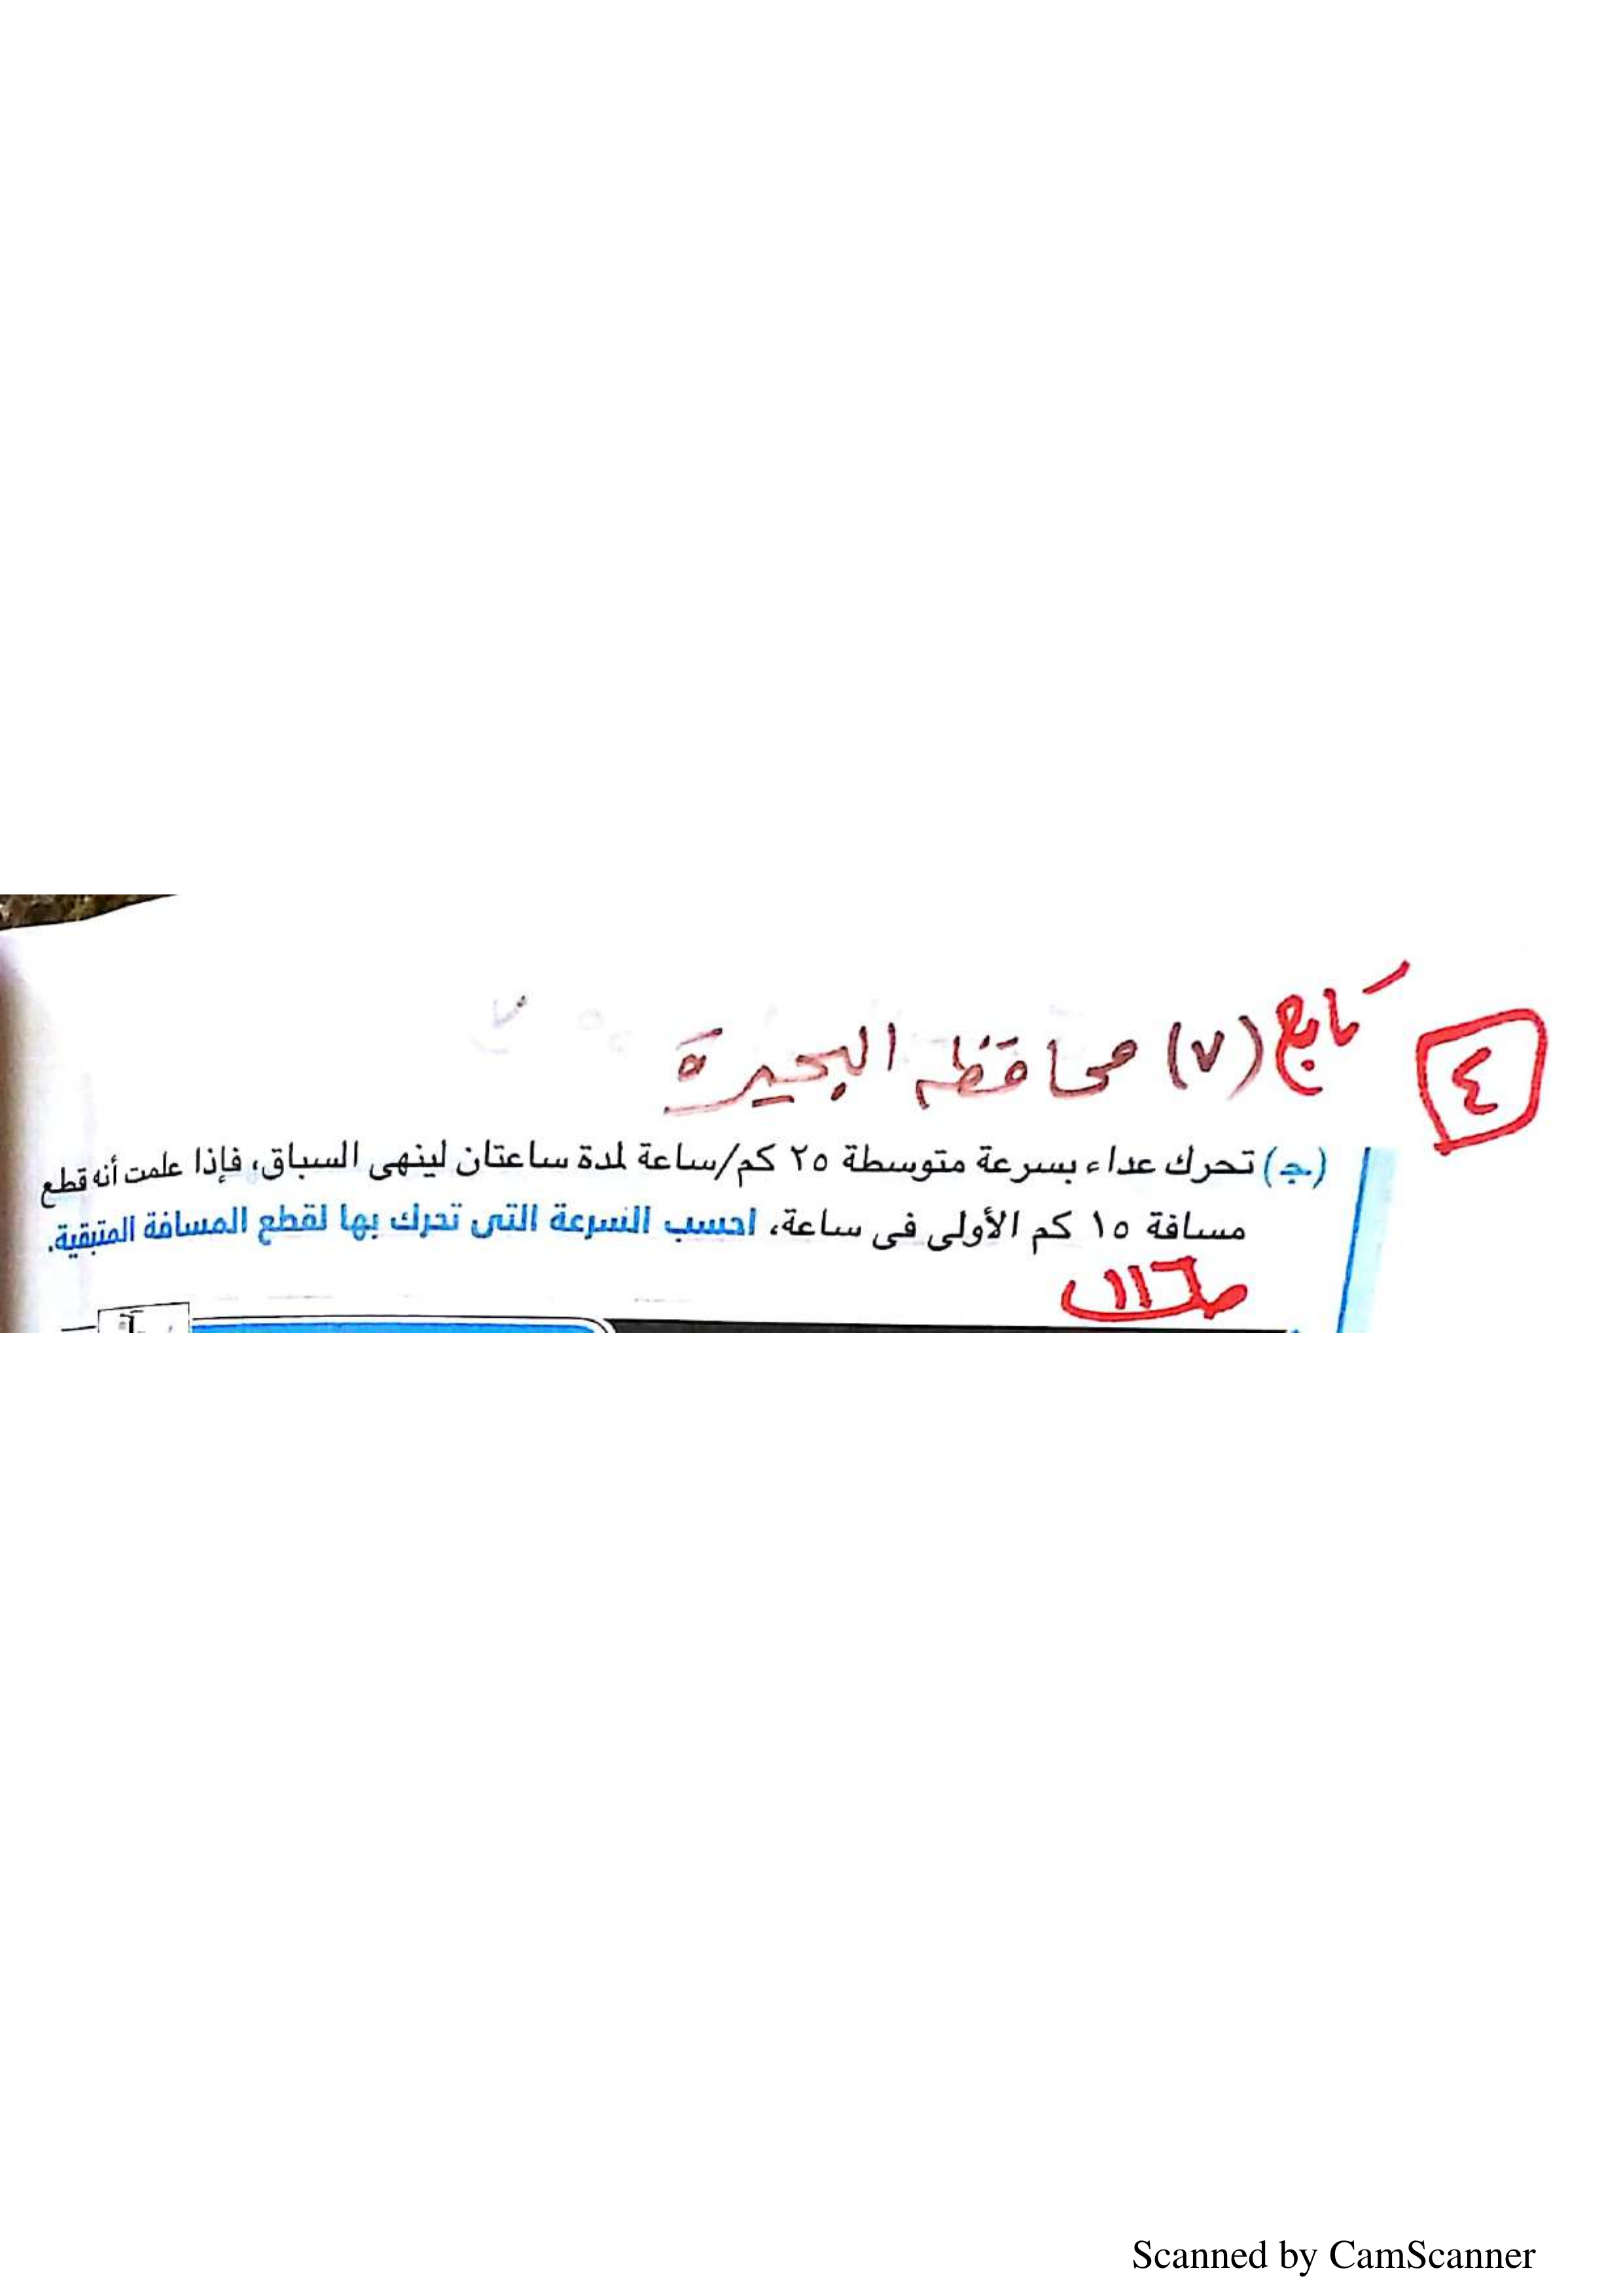 ٤
تابع (٧) محافظة البحيرة
(جـ) تحرك عداء بسرعة متوسطة ٢٥ كم/ساعة لمدة ساعتان لينهى السباق، فإذا علمت أنه قطع
مسافة ١٥ كم الأولى فى ساعة، احسب السرعة التى تحرك بها لقطع المسافة المتبقية.
ص١١٦
Scanned by CamScanner